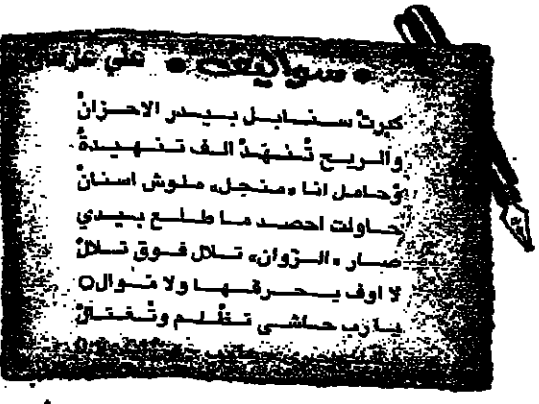 سواليف علي
كبرت سنابل بيدر الاحزان
والريح تنهد الف تنهيدة
وحامل انا «منجل» ملوش اسنان
حاولت احصد ما طلع بيدي
صار «الزوان» تلال فوق تلال
لا اوف يحرقها ولا موال
يا رب حاشى تظلم وتغتال